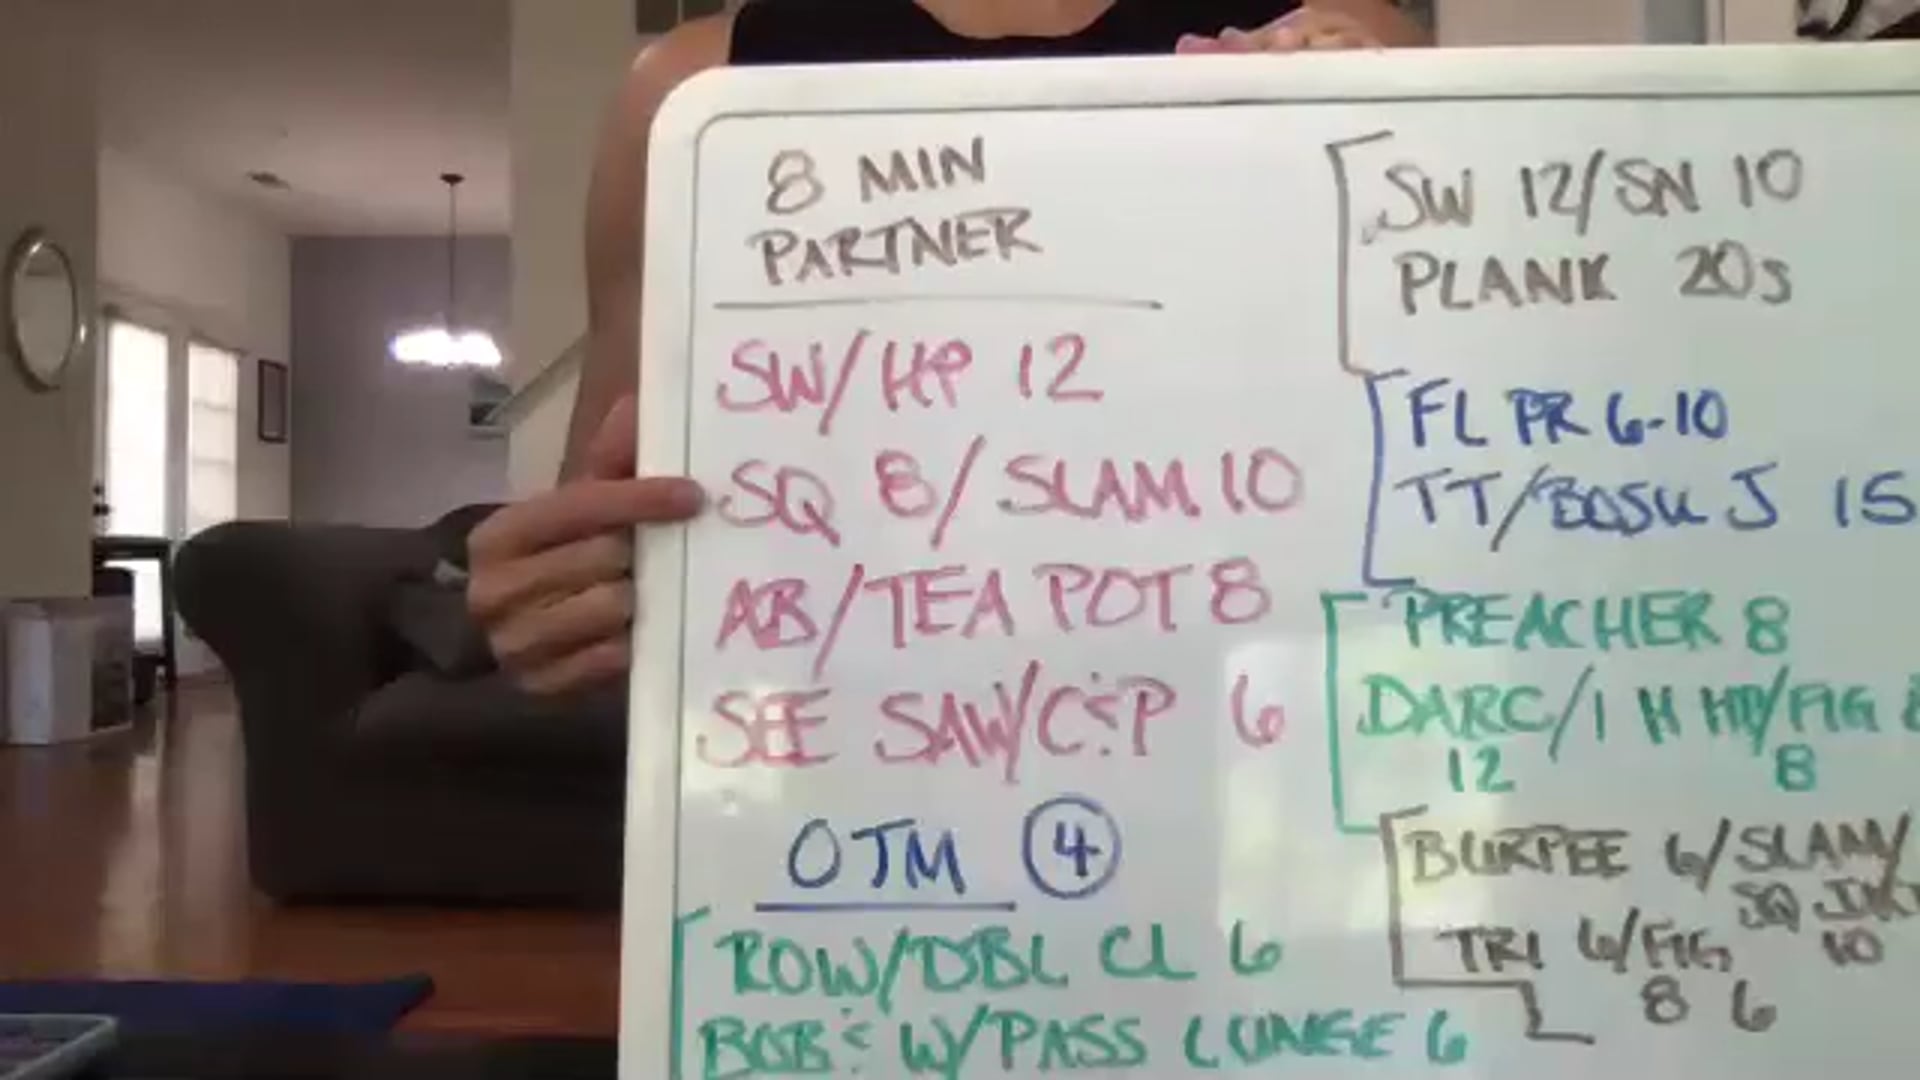 8 MIN
PARTNER
SW/HP 12
SQ 8/SLAM 10
AB/TEA POT 8
SEE SAW/C&P 6
OTM 4
ROW/DBL CL 6
BOB & W/PASS LUNGE 6
SW 12/SN 10
PLANK 20s
FL PR 6-10
TT/BOSU J 15
PREACHER 8
DARC/1 H HP/FIG 8
12 8
BURPEE 6/SLAM/
SQ
TRI 6/FIG 10
8 6